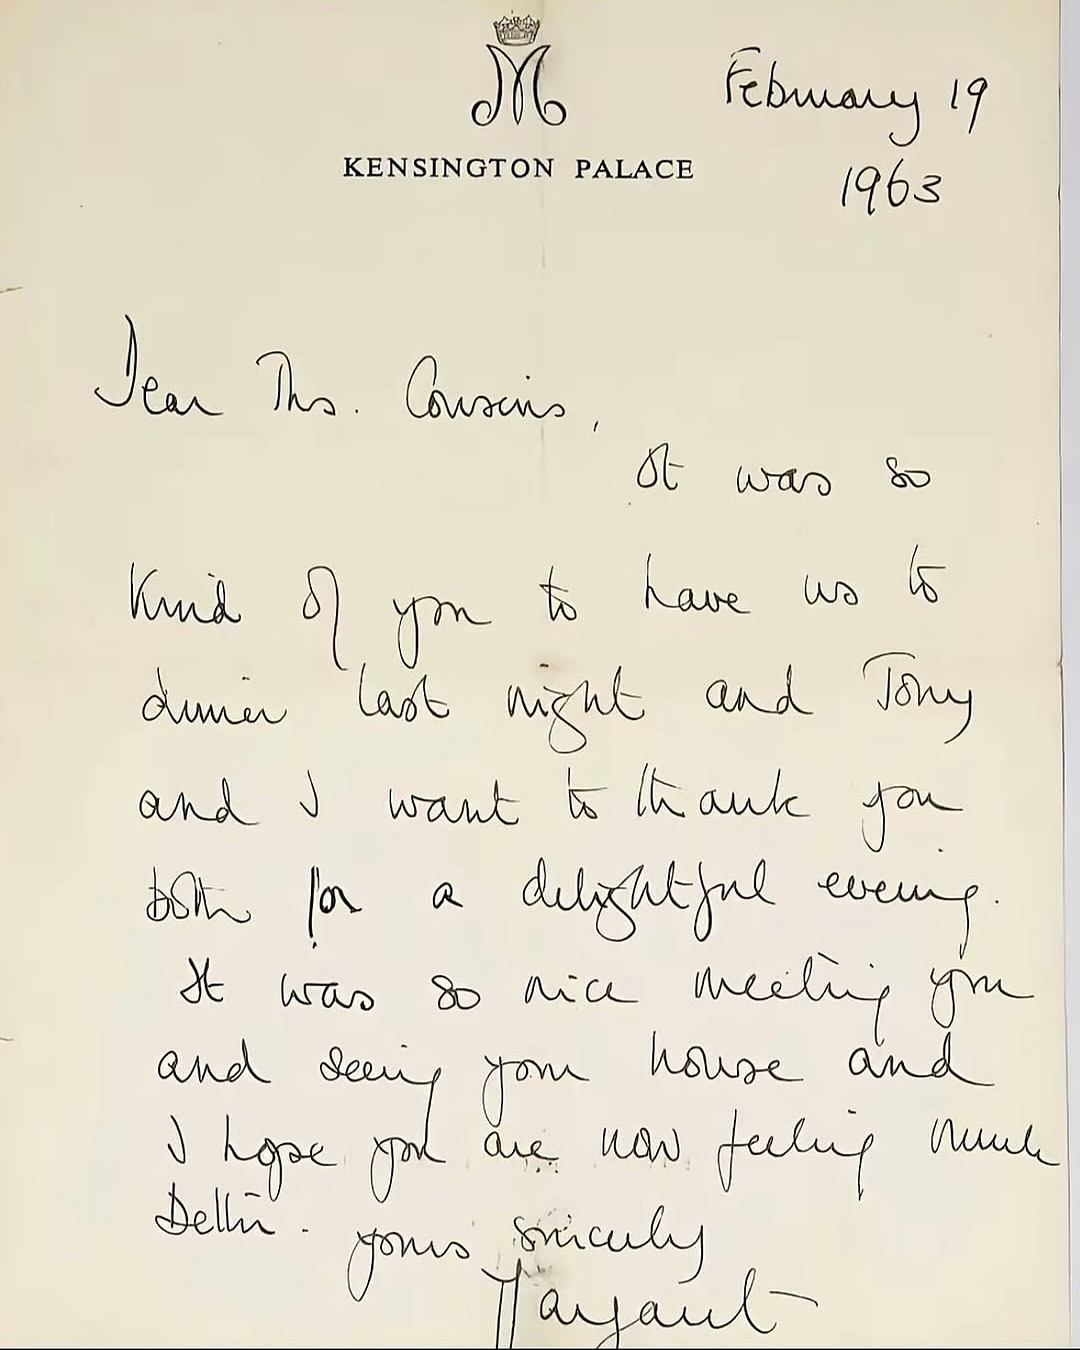 M
KENSINGTON PALACE
February 19
1963
Dear Mrs. Cousins,
It was so
kind of you to have us to
dinner last night and Tony
and I want to thank you
both for a delightful evening.
It was so nice meeting you
and seeing your house and
I hope you are now feeling much
better.
yours sincerely
Margaret